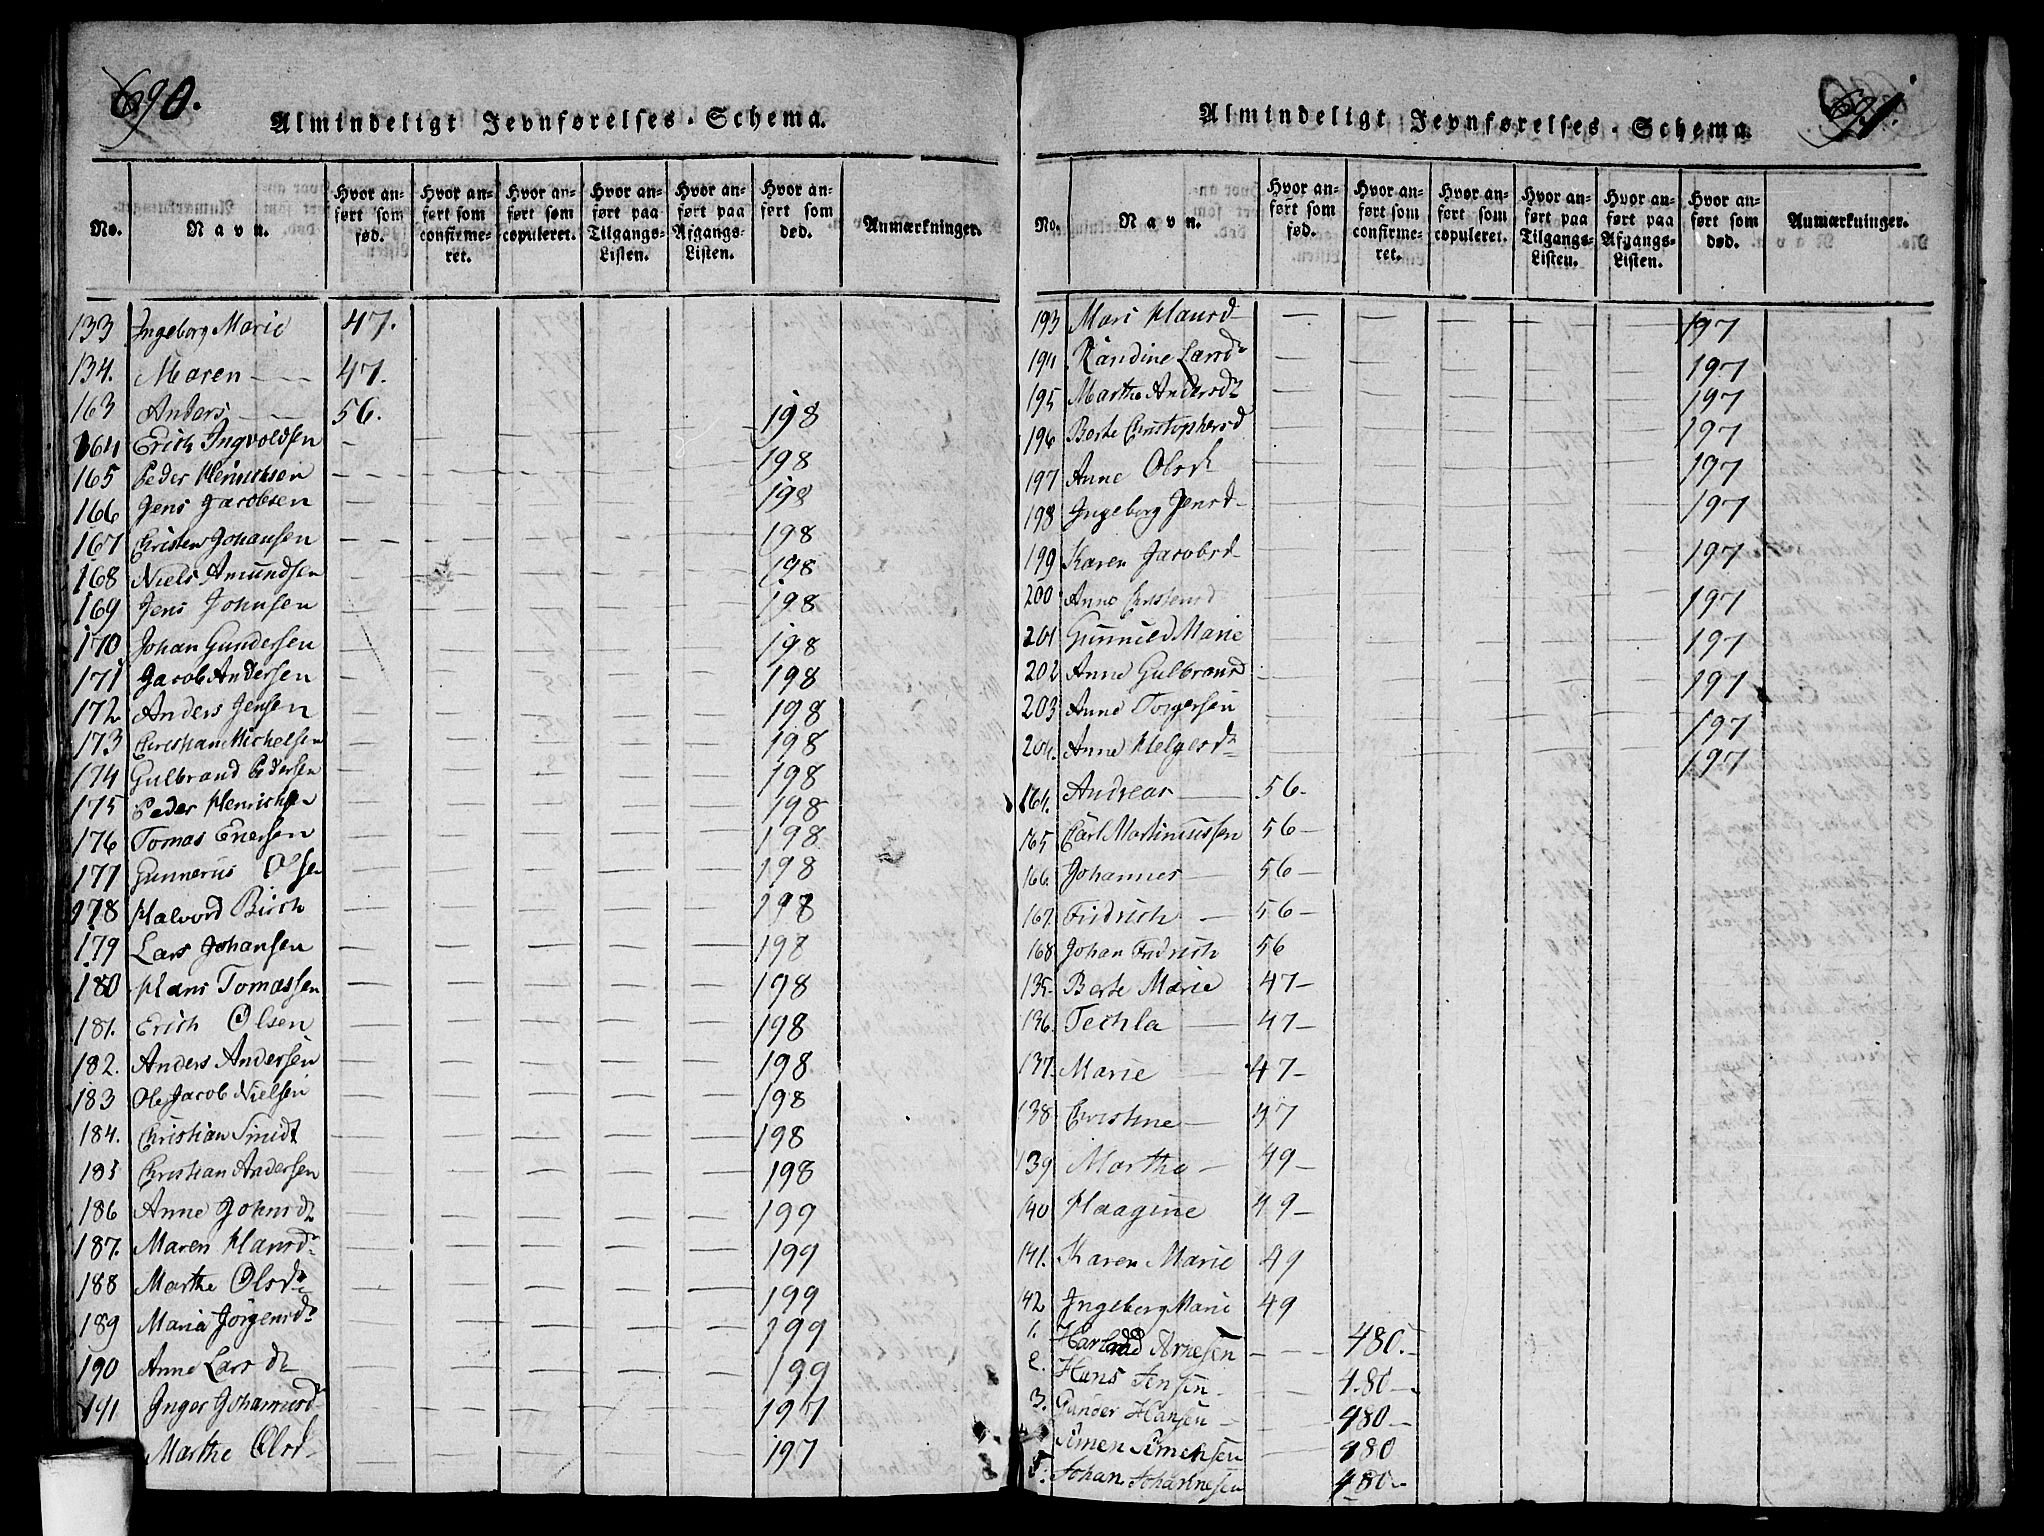 690.
Almindeligt Jevnførelses-Schema.
No. Navn. Hvor anført som fød. Hvor anført som confirmeret. Hvor anført som copuleret. Hvor anført paa Tilgangs-Listen. Hvor anført paa Afgangs-Listen. Hvor anført som død. Anmærkninger.
133 Ingeborg Marie 47.
134. Maren — 47.
163 Anders — 56. 198
164 Erich Ingvoldsen — — — — — 198
165 Peder Henrichsen — — — — — 198
166 Jens Jacobsen — — — — — 198
167 Christen Johansen — — — — — 198
168 Niels Amundsen — — — — — 198
169 Jens Johnsen — — — — — 198
170 Johan Gundersen — — — — — 198
171 Jacob Andersen — — — — — 198
172 Anders Jensen — — — — — 198
173 Christian Michelsen — — — — — 198
174 Gulbrand Pedersen — — — — — 198
175 Peder Henrichsen — — — — — 198
176 Tomas Enersen — — — — — 198
177 Gunnerus Olsen — — — — — 198
178 Halvord Birch — — — — — 198
179 Lars Johansen — — — — — 198
180 Hans Tomassen — — — — — 198
181. Erich Olsen — — — — — 198
182. Anders Andersen — — — — — 198
183 Ole Jacob Nielsen — — — — — 198
184. Christian Smidt — — — — — 198
185 Christian Andersen — — — — — 198
186 Anne Johnsdr — — — — — 199
187. Maren Hansdr — — — — — 199
188 Marthe Olsdr — — — — — 199
189 Maria Jörgensdr — — — — — 199
190 Anne Larsdr — — — — — 199
191 Inger Johannesd — — — — — 197
Marthe Olsd — — — — — 197
691.
Almindeligt Jevnførelses-Schema.
No. Navn. Hvor anført som fød. Hvor anført som confirmeret. Hvor anført som copuleret. Hvor anført paa Tilgangs-Listen. Hvor anført paa Afgangs-Listen. Hvor anført som død. Anmærkninger.
193 Mari Hansd — — — — — 197
194 Randine Larsdr — — — — — 197
195 Marthe Andersdr — — — — — 197
196 Berte Christophersd — — — — — 197
197 Anne Olsdr — — — — — 197
198 Ingeborg Jensd — — — — — 197
199 Karen Jacobsd — — — — — 197
200 Anne Christensd — — — — — 197
201 Gunnild Marie — — — — — 197
202 Anne Gulbransd — — — — — 197
203 Anne Torgersen — — — — — 197
204. Anne Helgesdr — — — — — 197
164. Andreas — 56-
165 Carl Martinussen 56-
166. Johannes — 56-
167. Fridrich — 56-
168 Johan Fridrich 56
135. Berte Marie 47-
136. Techla — 47-
137. Marie — 47-
138 Christine — 47
139 Marthe — 49-
140 Haagine 49-
141. Karen Marie 49
142 Ingeborg Marie 49
1. Arnesen — 480.-
2. Hans Jensen — 480-
3. Gunder Hansen — 480-
4 Simen Simensen — 480
5. Johan Johannesen — 480-